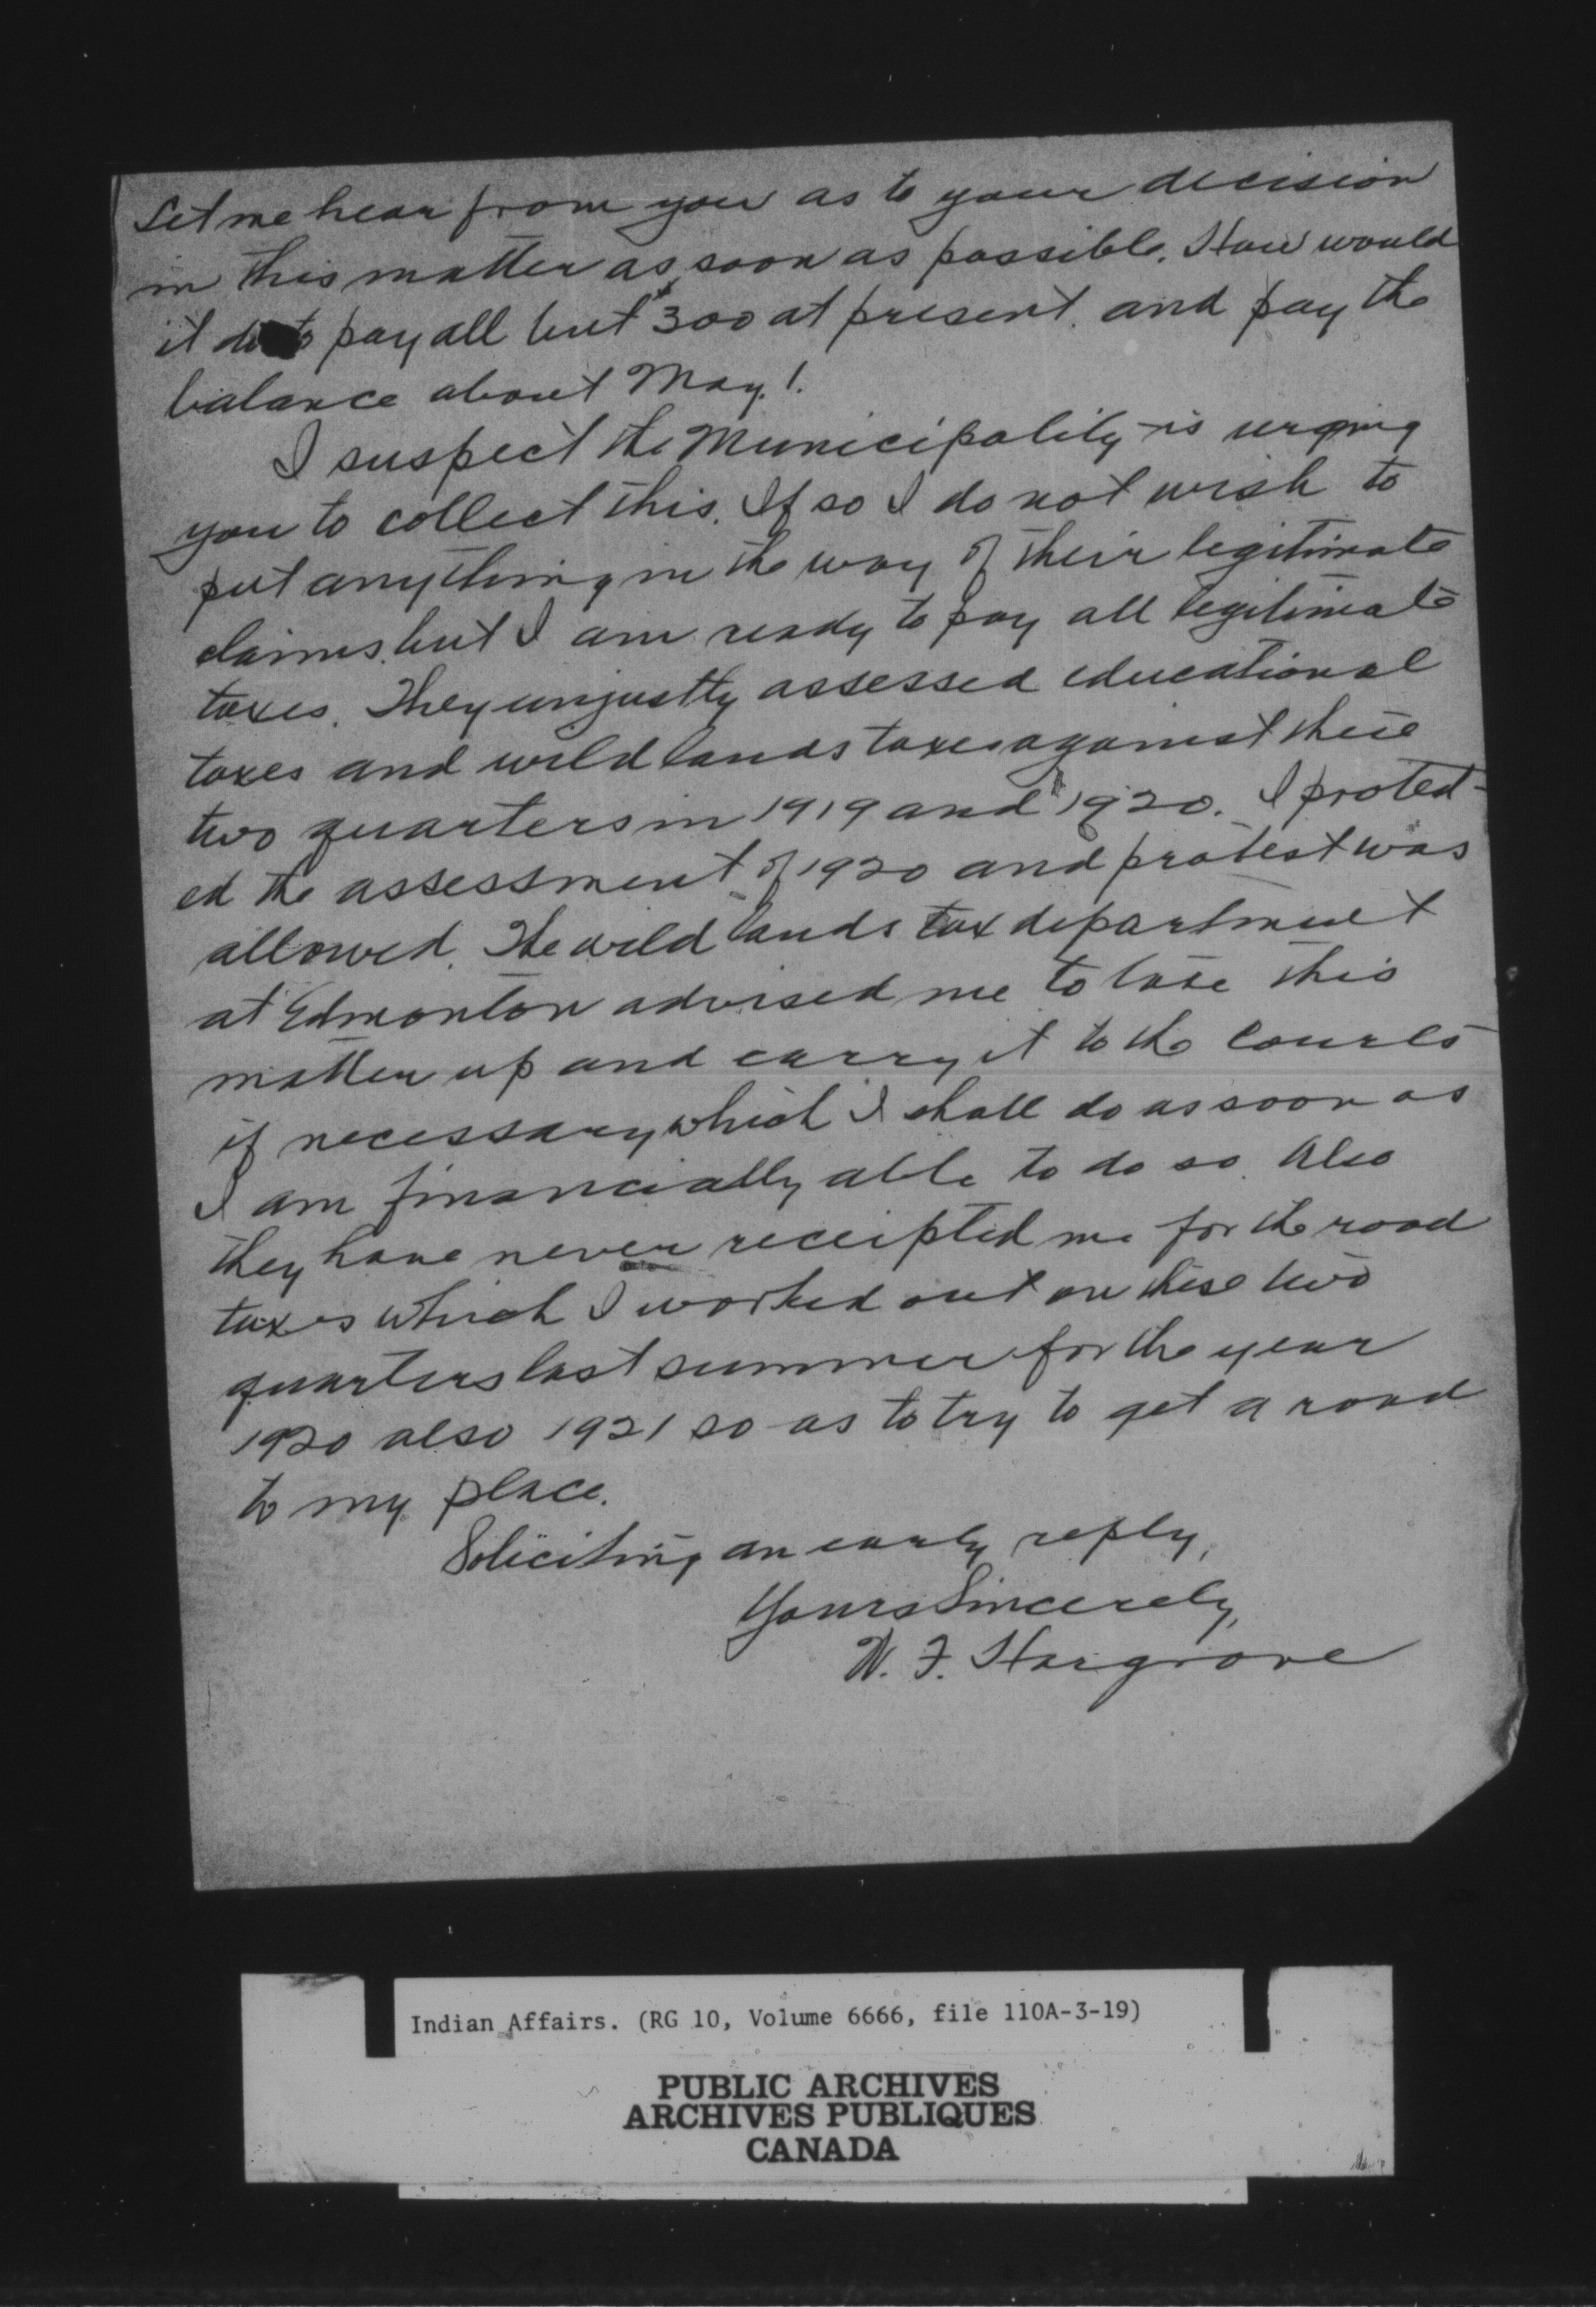 Let me hear from you as to your decision
in this matter as soon as possible. How would
it do to pay all but $300 at present. and pay the
balance about May. 1.
I suspect the Municipality is urging
you to collect this. If so I do not wish to
put anything in the way of their legitimate
claims. but I am ready to pay all legitimate
taxes. They unjustly assessed educational
taxes and wild lands taxes against these
two quarters in 1919 and 1920. I proted-
ed the assessment of 1920 and protest was
allowed. The wild lands tax department
at Edmonton advised me to take this
matter up and carry it to the courts
if necessary which I shall do as soon as
I am financially able to do so. Also
they have never receipted me for the road
taxes which I worked out on these two
quarters last summer for the year
1920 also 1921 so as to try to get a road
to my place.
Soliciting an early reply,
Yours Sincerely,
W. F. Hargrove
Indian Affairs. (RG 10, Volume 6666, file 110A-3-19)
PUBLIC ARCHIVES
ARCHIVES PUBLIQUES
CANADA